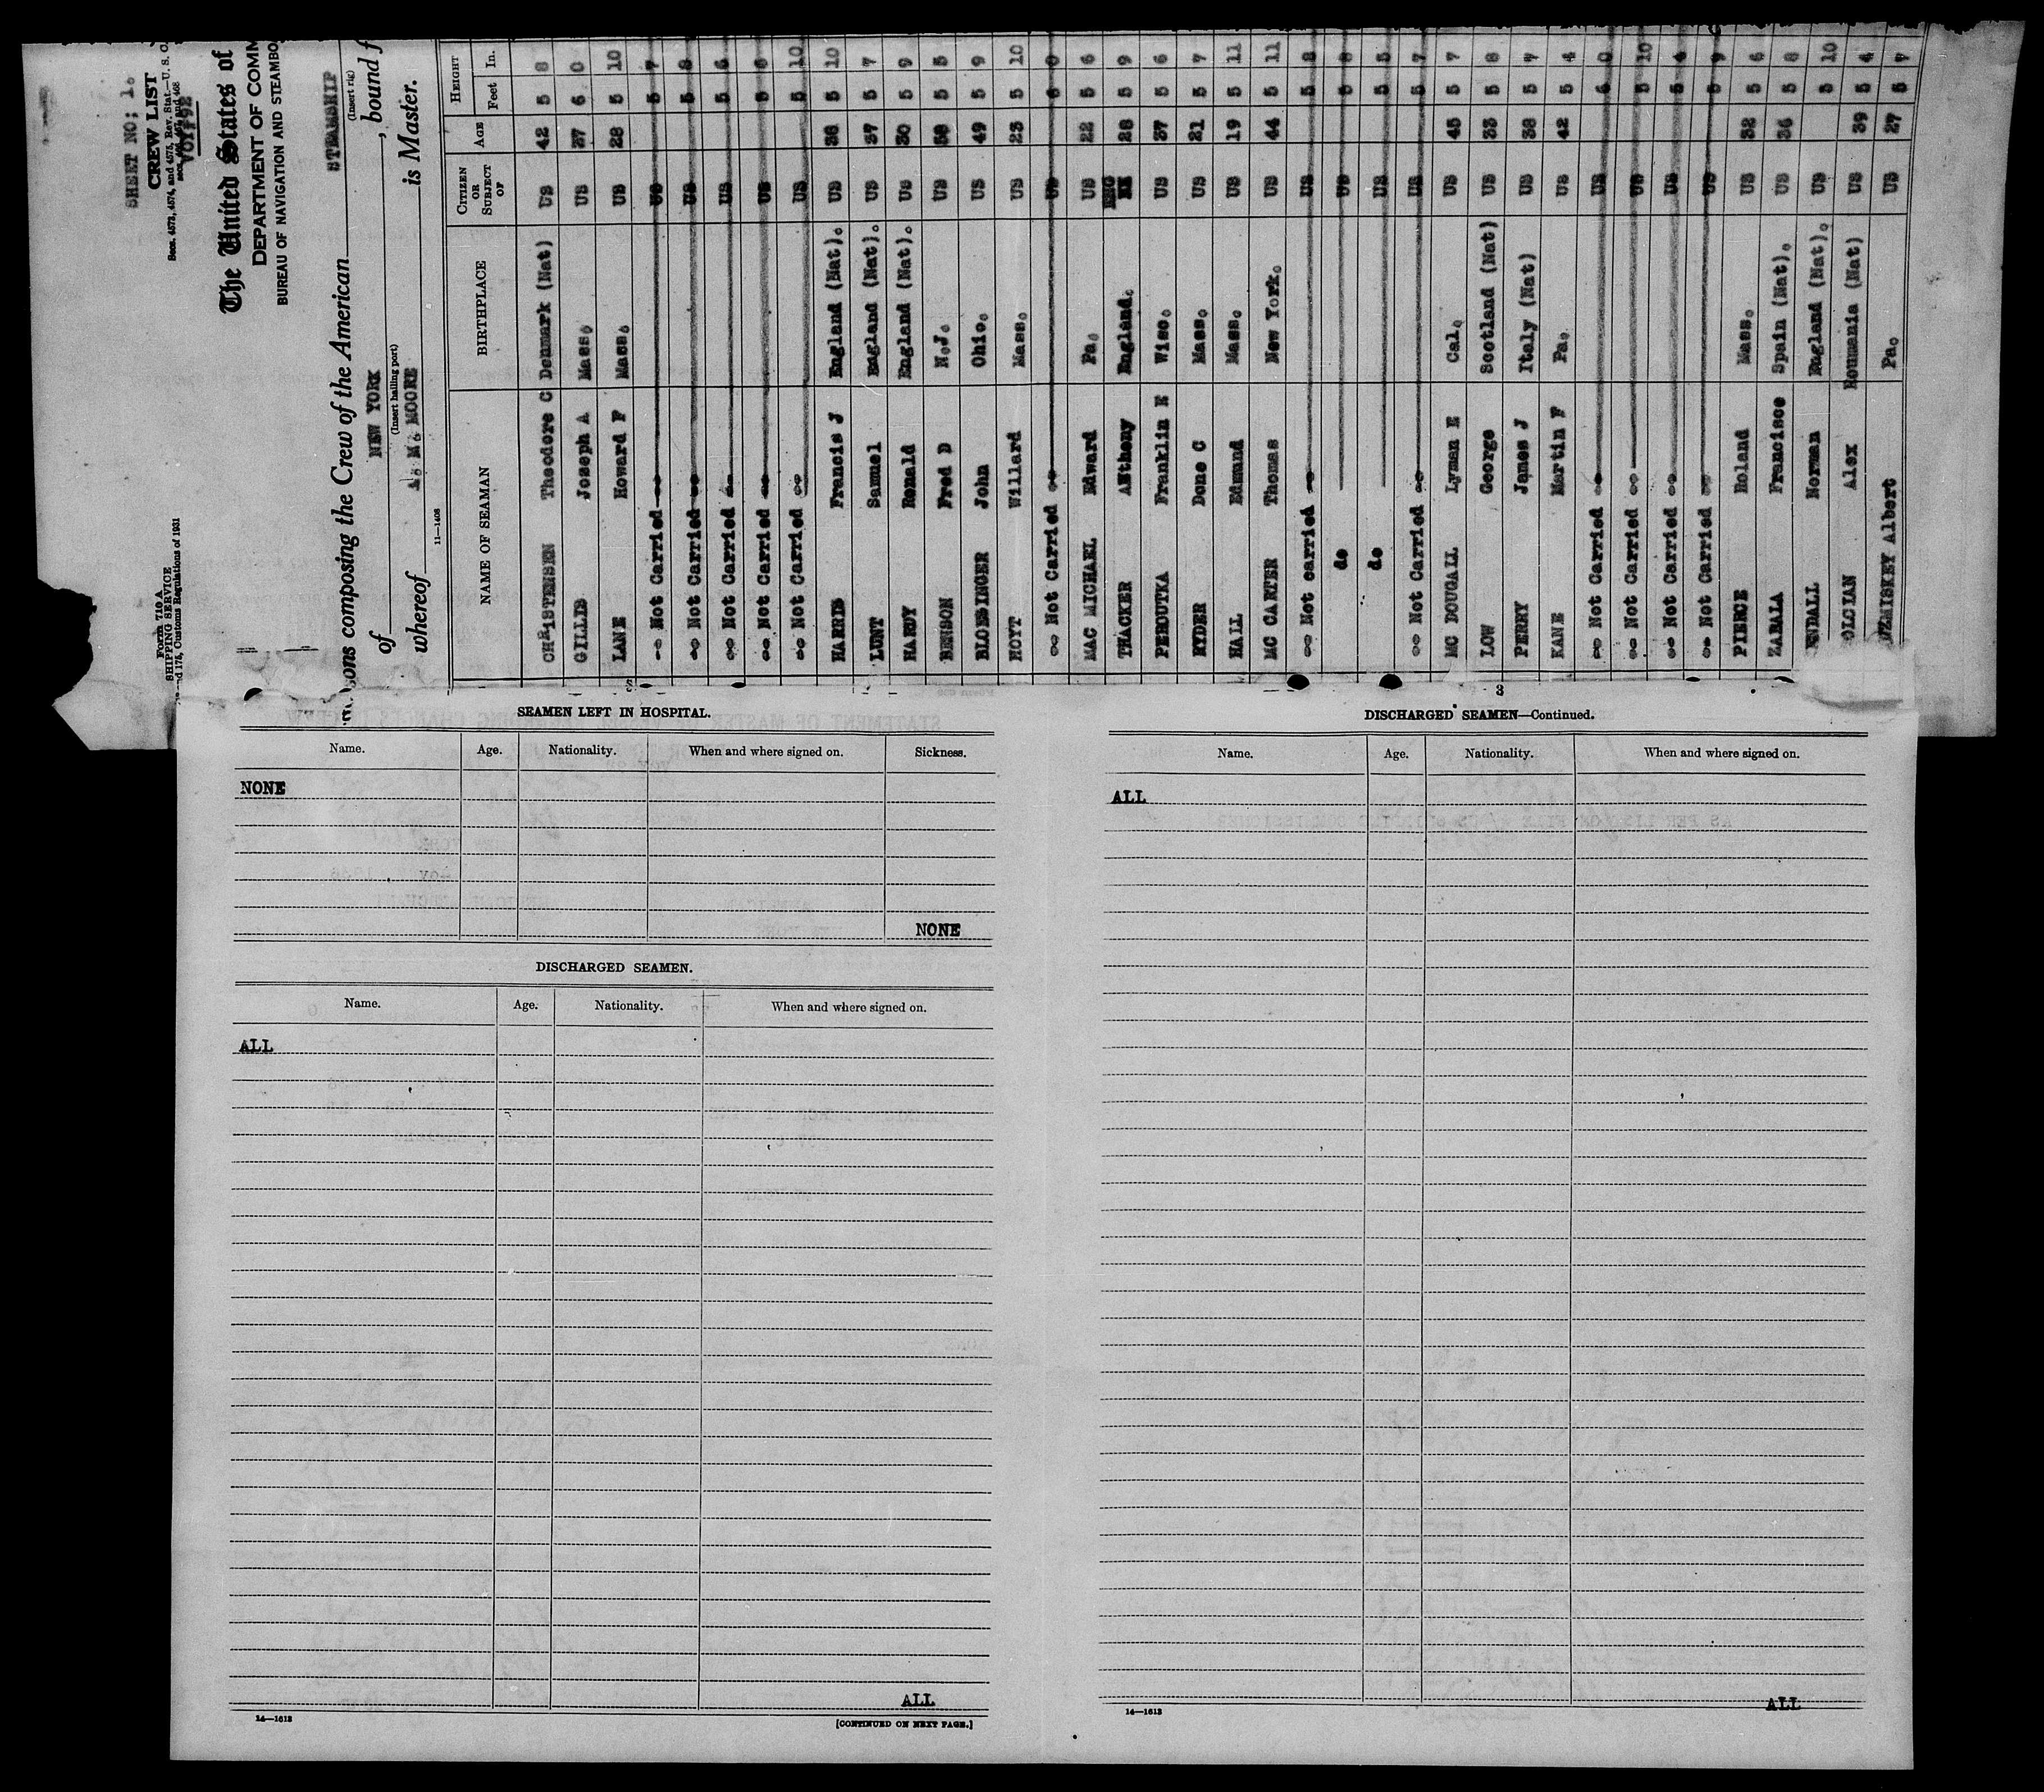 SHEET NO; 1.
CREW LIST
Secs. 4573, 4574, and 4575, Rev. Stat.—U. S. C.
VOY#92
Form 710 A
SHIPPING SERVICE
and 176, Customs Regulations of 1931
The United States of
DEPARTMENT OF COMM
BUREAU OF NAVIGATION AND STEAMBO
STEAMSHIP
(Insert rig)
ons composing the Crew of the American
of NEW YORK , bound f
(Insert hailing port)
whereof A. M. MOORE is Master.
11—1408
NAME OF SEAMAN BIRTHPLACE CITIZEN OR SUBJECT OF AGE HEIGHT Feet In.
CHRISTENSEN Theodore C Denmark (Nat) US 42 5 8
GILLIS Joseph A Mass. US 37 6 0
LANE Howard F Mass. US 28 5 10
-- Not Carried -- US 5 7
-- Not Carried -- US 5 8
-- Not Carried -- US 5 6
-- Not Carried -- US 5 6
-- Not Carried -- US 5 10
HARRIS Francis J England (Nat). US 36 5 10
LUNT Samuel England (Nat). US 37 5 7
HARDY Ronald England (Nat). US 30 5 9
BENSON Fred D N.J. US 38 5 5
BLOESINGER John Ohio. US 49 5 9
HOYT Willard Mass. US 23 5 10
-- Not Carried -- US 6 0
MAC MICHAEL Edward Pa. US 22 5 6
THACKER Anthony England. 28 5 9
PEROUTKA Franklin E Wisc. US 37 5 6
RYDER Done C Mass. US 21 5 7
HALL Edmund Mass. US 19 5 11
MC CARTER Thomas New York. US 44 5 11
-- Not carried -- US 5 8
do US 5 8
do US 5 5
-- Not Carried -- US 5 7
MC DOUGALL Lyman E Cal. US 45 5 7
LOW George Scotland (Nat) US 33 5 8
PERRY James J Italy (Nat) US 38 5 7
KANE Martin F Pa. US 42 5 4
-- Not Carried -- US 6 0
-- Not Carried -- US 5 10
-- Not Carried -- US 5 4
-- Not Carried -- US 5 9
PIERCE Roland Mass. US 32 5 6
ZABALA Francisco Spain (Nat). US 36 5 8
ENDALL Norman England (Nat). US 5 10
OLCIAN Alex Roumania (Nat) US 39 5 4
DZMISKEY Albert Pa. US 27 5 7
SEAMEN LEFT IN HOSPITAL.
Name. Age. Nationality. When and where signed on. Sickness.
NONE
NONE
DISCHARGED SEAMEN.
Name. Age. Nationality. When and where signed on.
ALL
ALL
14—1613
[CONTINUED ON NEXT PAGE.]
3
DISCHARGED SEAMEN—Continued.
Name. Age. Nationality. When and where signed on.
ALL
ALL
14—1613